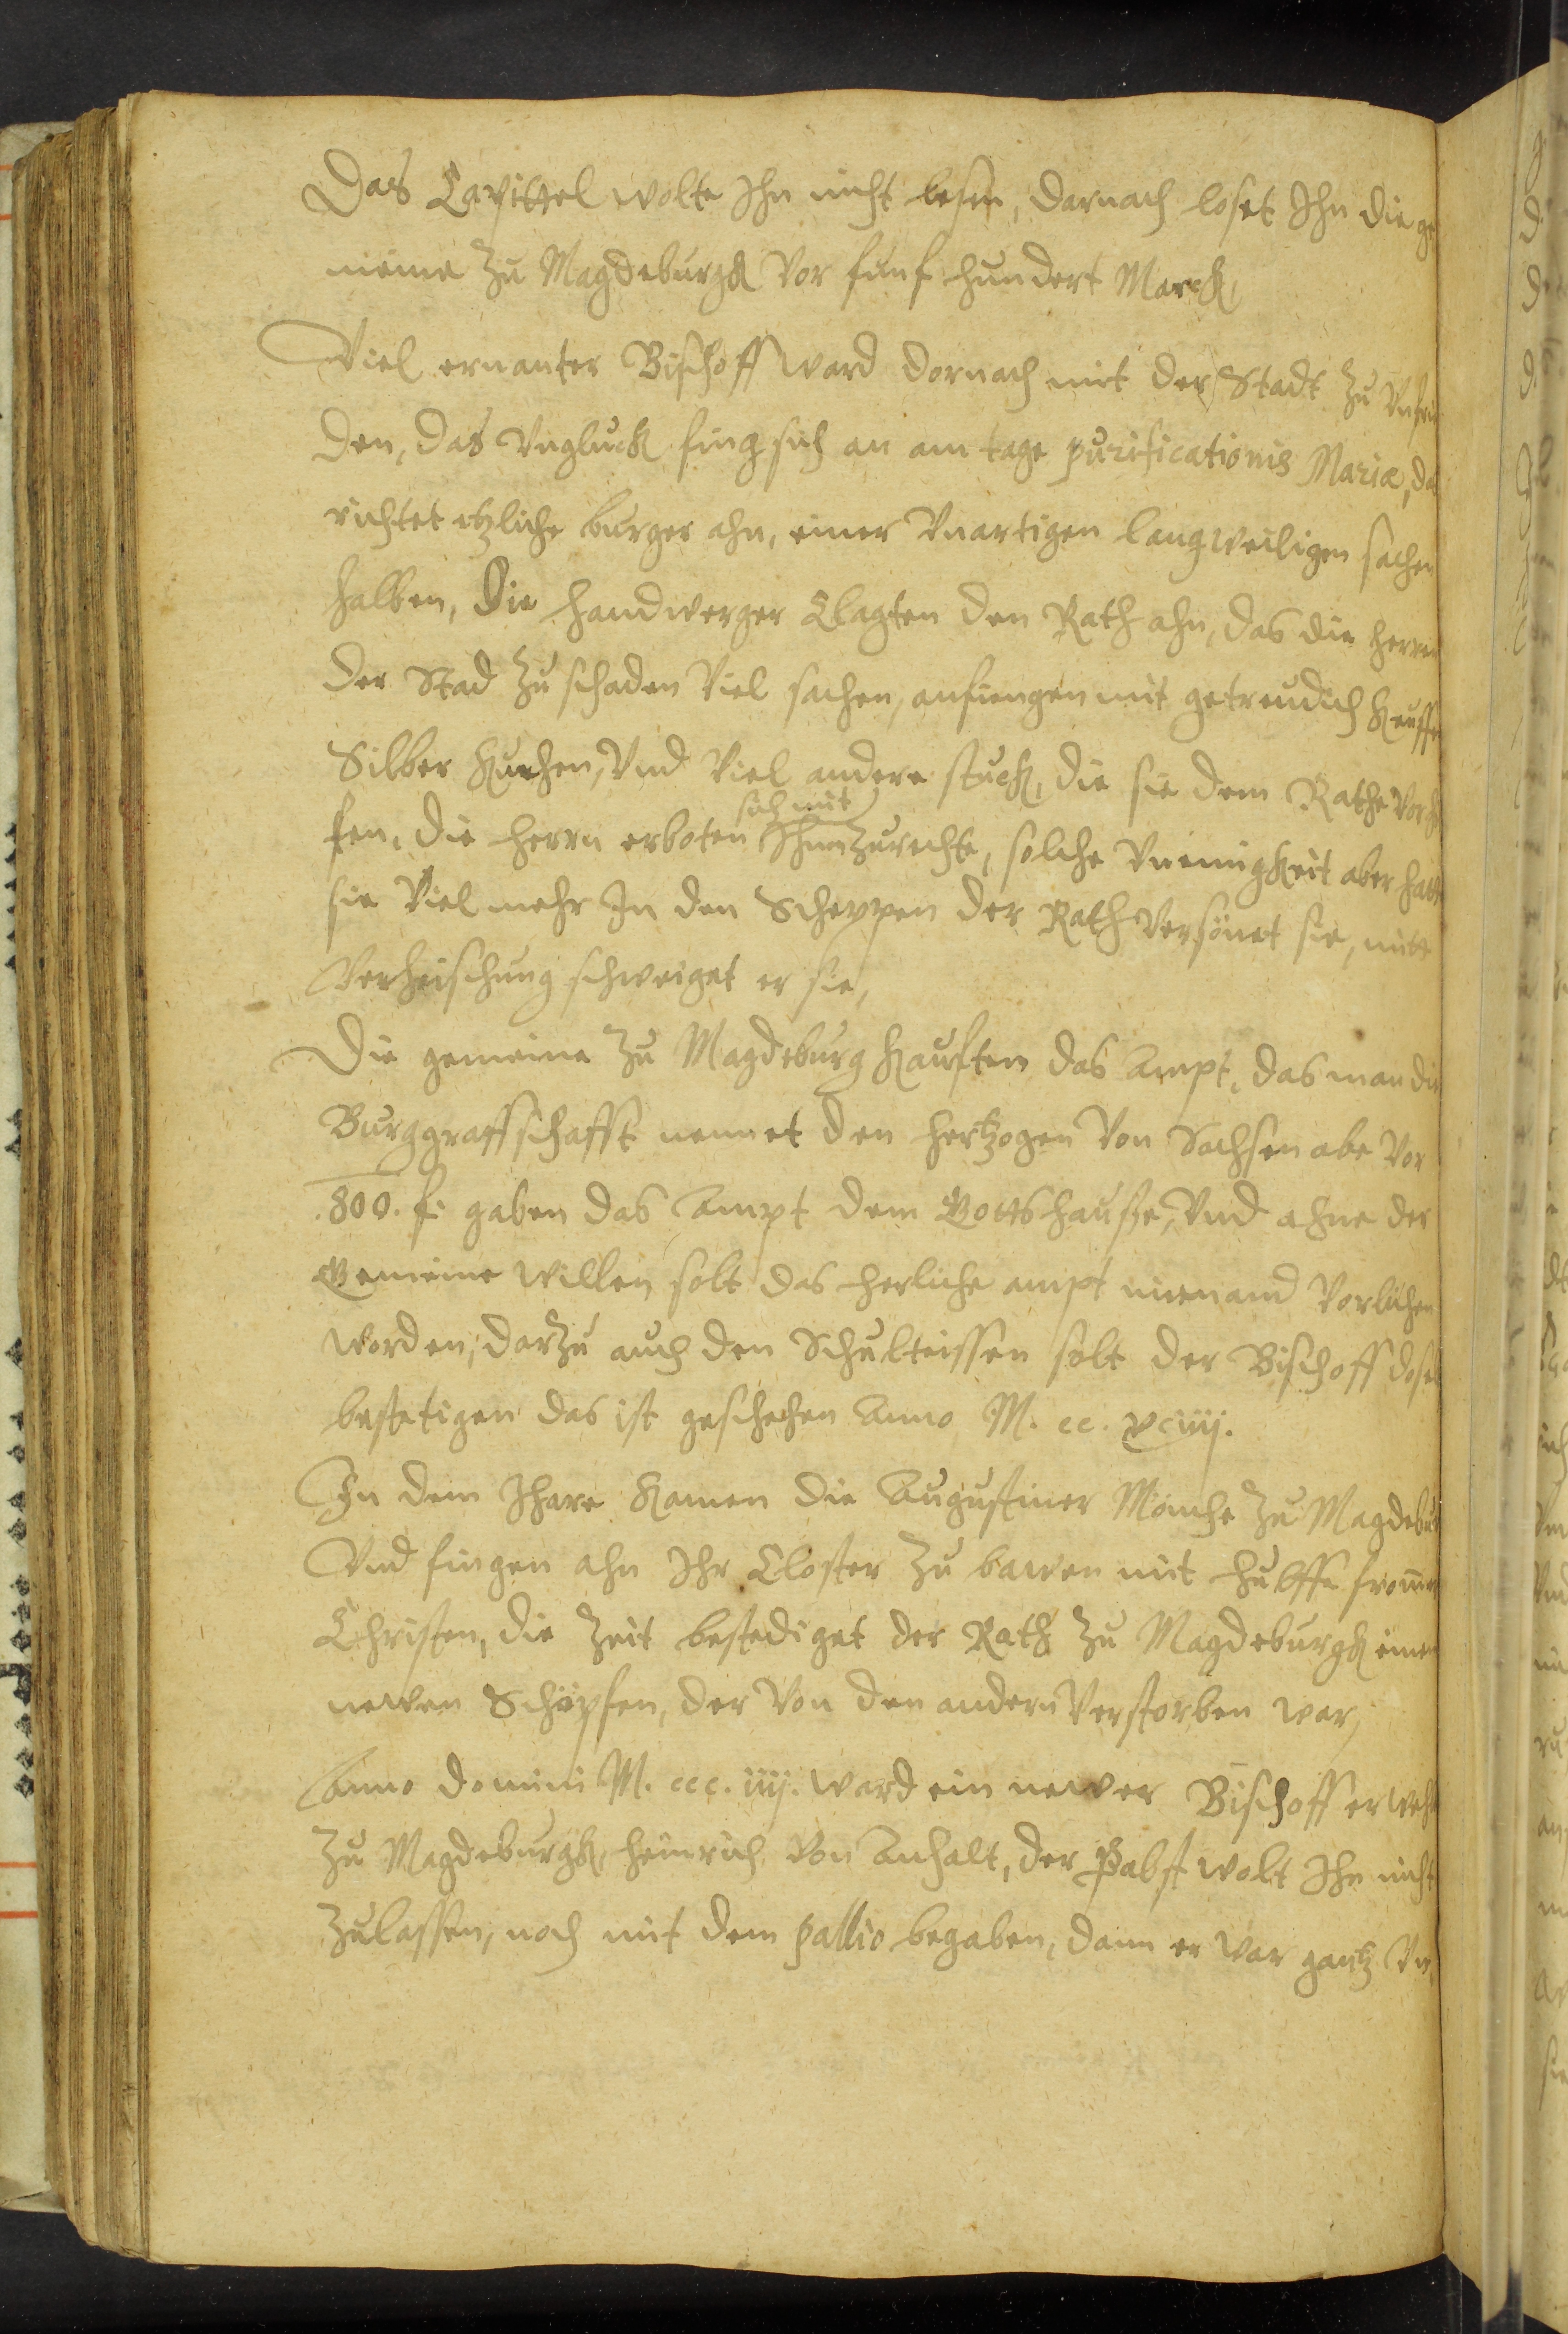 Das Capittel wolte Ihn nicht lesen, darnach loset Ihn die ge
meine zu Magdeburgk Vor funf hundert Marck,
Viel ernanter Bischoff ward dornach mit der Stadt zu Vnfri
den, das Vngluck fing sich an am tage purificationis Mariæ, da
richtet etzliche burger ahn, einer Vnartigen langweiligen sachen
halben, Die handwerger Clagten den Rath ahn, das die herren
der Stad zu schaden Viel sachen, anfiengen mit getreudich Keuffen
Silber Kuchen, Vnd Viel andere stuck, die sie dem Rathe Vor
fen, die herrn erboten sich mit Ihnen zurechte, solche Vneinigkeit aber hatt
sie Viel mehr In den Scheppen der Rath Versönet sie, mitt
Verheischung schweiget er sie,
Die gemeine zu Magdeburg Kauften das Ampt, das man die
Burggraffschafft nennet den hertzogen Von Sachsen abe Vor
.800. f. gaben das Ampt dem Gottshauße, Vnd ahne der
Gemeine willen solt das herliche ampt niemand Vorlichen
worden, darzu auch den Schulteissen solt der Bischoff dosel
bestetigen das ist geschehen Anno M. cc. xciiij.
In dem Ihare Kamen die Augustiner Mönche zu Magdebur
Vnd fingen ahn Ihr Closter zu bawen mit hulffe fromer
Christen, die Zeit bestediget der Rath zu Magdeburgk einen
newen Schöpfen, der Von den andern Verstorben war,
Anno domini M. ccc. iiij. ward ein newer Bischoff erweh
zu Magdeburgk, heinrich Von Anhalt, der Pabst wolt Ihn nicht
zulassen, noch mit dem pallio begaben, dann er war gantz Vn